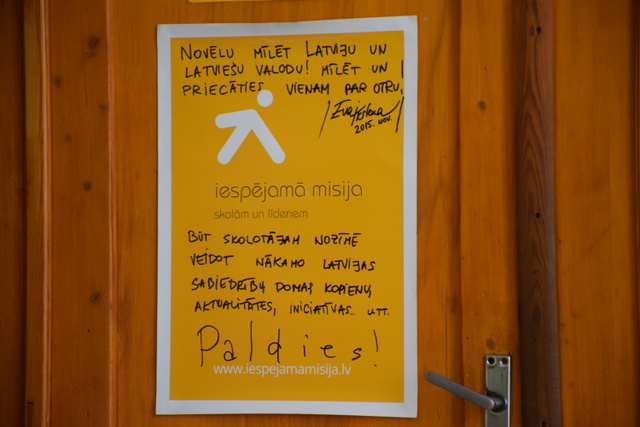 NOVĒLU MĪLĒT LATVIJU UN
LATVIEŠU VALODU! MĪLĒT UN
PRIECĀTIES VIENAM PAR OTRU!
2015. NOV.
iespējamā misija
skolām un līderiem
BŪT SKOLOTĀJAM NOZĪMĒ
VEIDOT NĀKAMO LATVIJAS
SABIEDRĪBU, DOMAS, KOPIENU,
AKTUALITĀTES, INICIATĪVAS UTT.
Paldies!
www.iespejamamisija.lv